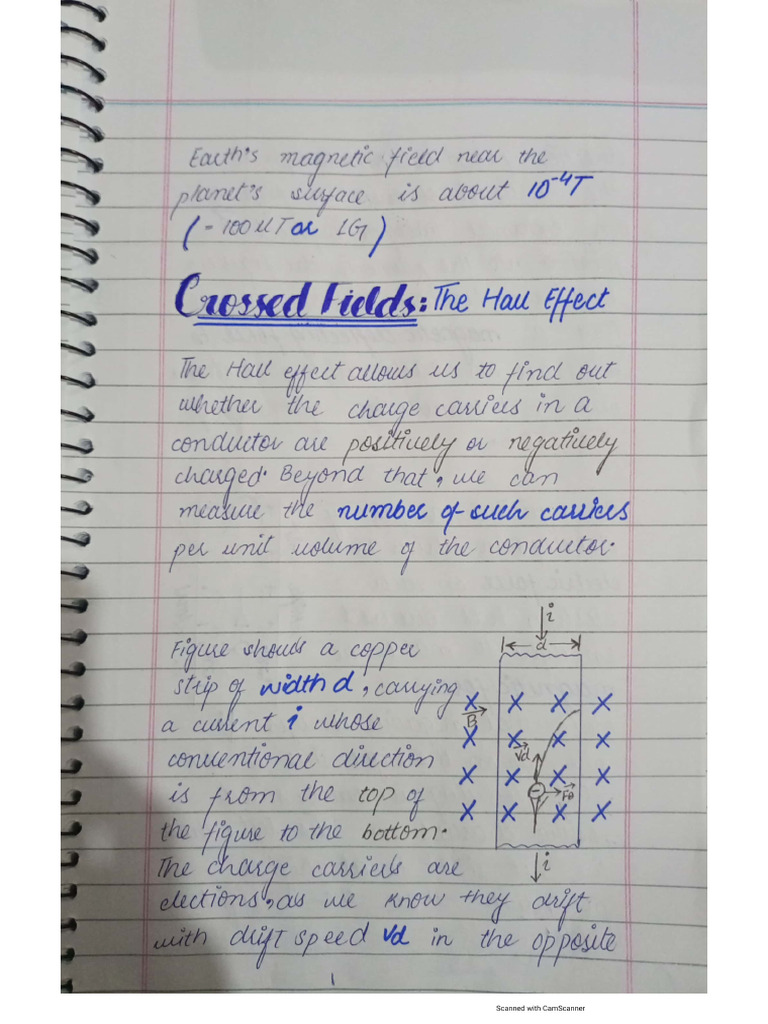 Earth's magnetic field near the
planet's surface is about 10⁻⁴T
(= 100 μT or 1G)
Crossed Fields: The Hall Effect
The Hall effect allows us to find out
whether the charge carriers in a
conductor are positively or negatively
charged. Beyond that, we can
measure the number of such carriers
per unit volume of the conductor.
i
d
Figure shows a copper
strip of width d, carrying
a current i whose
conventional direction
is from the top of
the figure to the bottom.
The charge carriers are
electrons, as we know they drift
with drift speed vd in the opposite
x x x x
B
x x x x
vd
x x x x
−
x x x x
i
1
Scanned with CamScanner